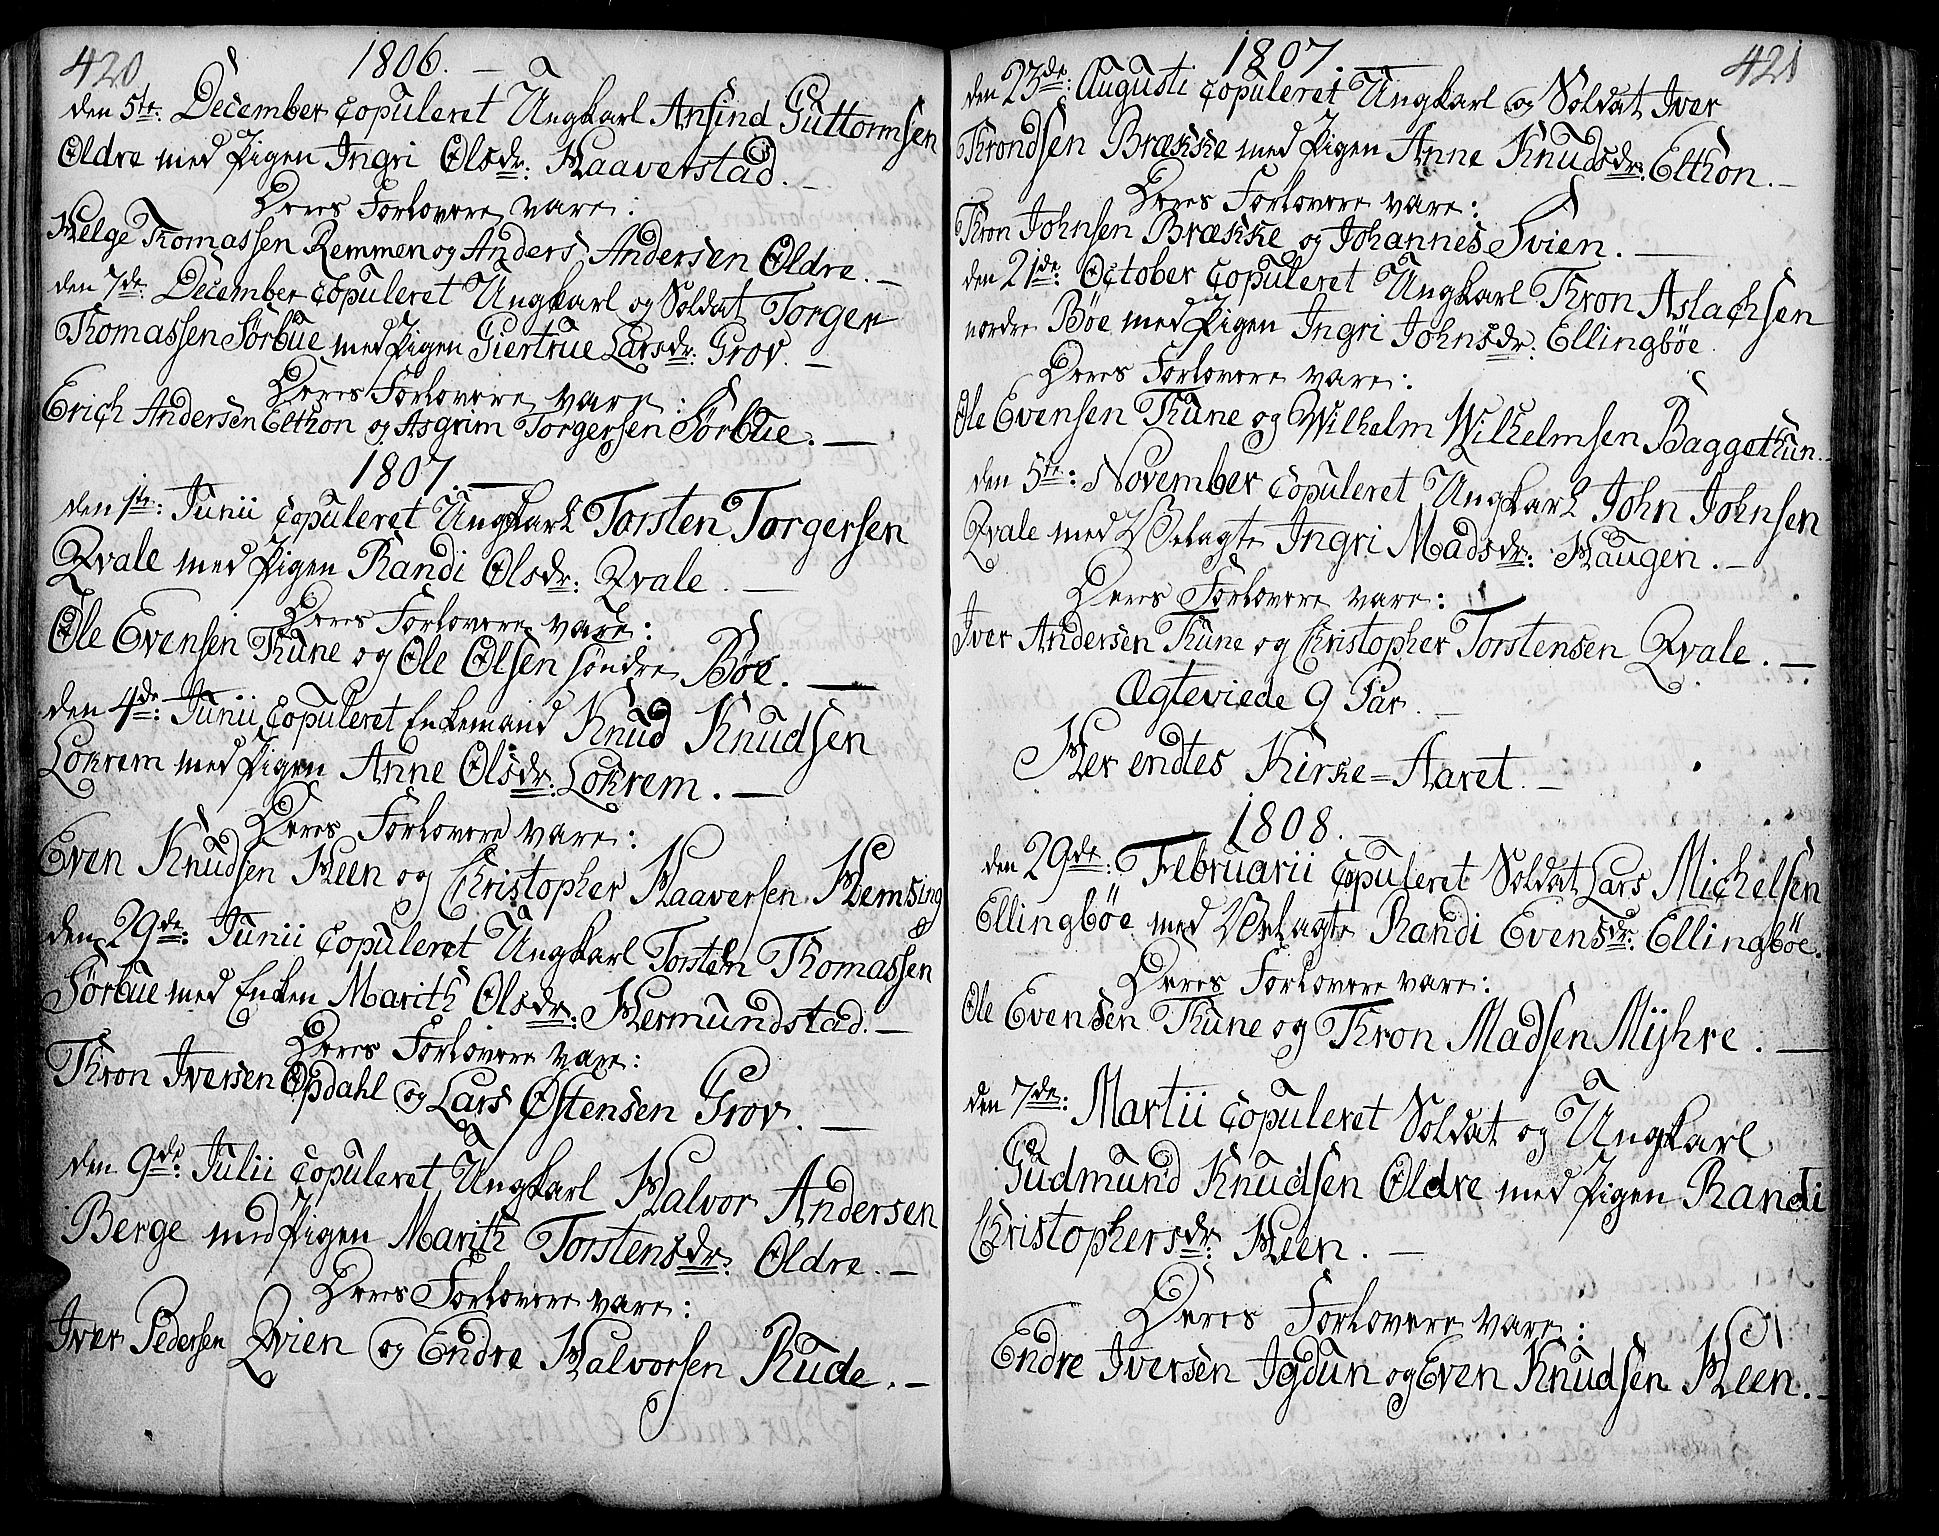 420
1806. —
den 5te: December Copuleret Ungkarl Ansind Guttormsen
Oldre med Pigen Ingri Olsdr: Haaverstad. —
Deres Forlovere vare:
Helge Thomassen Remmen og Anders Andersen Oldre. —
den 7de: December Copuleret Ungkarl og Soldat Torger
Thomassen Sørbue med Pigen Giertrue Larsdr: Grov. —
Deres Forlovere vare:
Erich Andersen Elthon og Asgrim Torgersen Sørbue. —
1807. —
den 1te: Junii Copuleret Ungkarl Torsten Torgersen
Qvale med Pigen Randi Olsdr: Qvale. —
Deres Forlovere vare:
Ole Evensen Thune og Ole Olsen søndre Bøe. —
den 4de: Junii Copuleret Enkemand Knud Knudsen
Lokrem med Pigen Anne Olsdr: Lokrem. —
Deres Forlovere vare:
Even Knudsen Heen og Christopher Haaversen Hemsing
den 29de: Junii Copuleret Ungkarl Torsten Thomassen
Sørbue med Enken Marith Olsdr: Hermundstad. —
Deres Forlovere vare:
Thron Iversen Opdahl og Lars Østensen Grov. —
den 9de: Julii Copuleret Ungkarl Halvor Andersen
Berge med Pigen Marith Torstensdr: Oldre. —
Deres Forlovere vare:
Iver Pedersen Qvien og Endre Halvorsen Rude. —
421
1807. —
den 23de: Augusti Copuleret Ungkarl og Soldat Iver
Throndsen Brække med Pigen Anne Knudsdr: Elthon. —
Deres Forlovere vare:
Thron Johnsen Brække og Johannes Svien. —
den 21de: October Copuleret Ungkarl Thron Aslachsen
nordre Bøe med Pigen Ingri Johnsdr: Ellingbøe.
Deres Forlovere vare:
Ole Evensen Thune og Wilhelm Wilhelmsen Baggethun.
den 5te: November Copuleret Ungkarl John Johnsen
Qvale med Besagte Ingri Madsdr: Haugen. —
Deres Forlovere vare:
Iver Andersen Thune og Christopher Torstensen Qvale. —
Ægteviede 9 Par. —
Her endtes Kirke=Aaret. —
1808. —
den 29de: Februarii Copuleret Soldat Lars Michelsen
Ellingbøe med Besagte Randi Evensdr: Ellingbøe.
Deres Forlovere vare:
Ole Evensen Thune og Thron Madsen Mÿhre. —
den 7de: Martii Copuleret Soldat og Ungkarl
Gudmund Knudsen Oldre med Pigen Randi
Christophersdr: Heen. —
Deres Forlovere vare:
Endre Iversen Igdun og Even Knudsen Heen. —